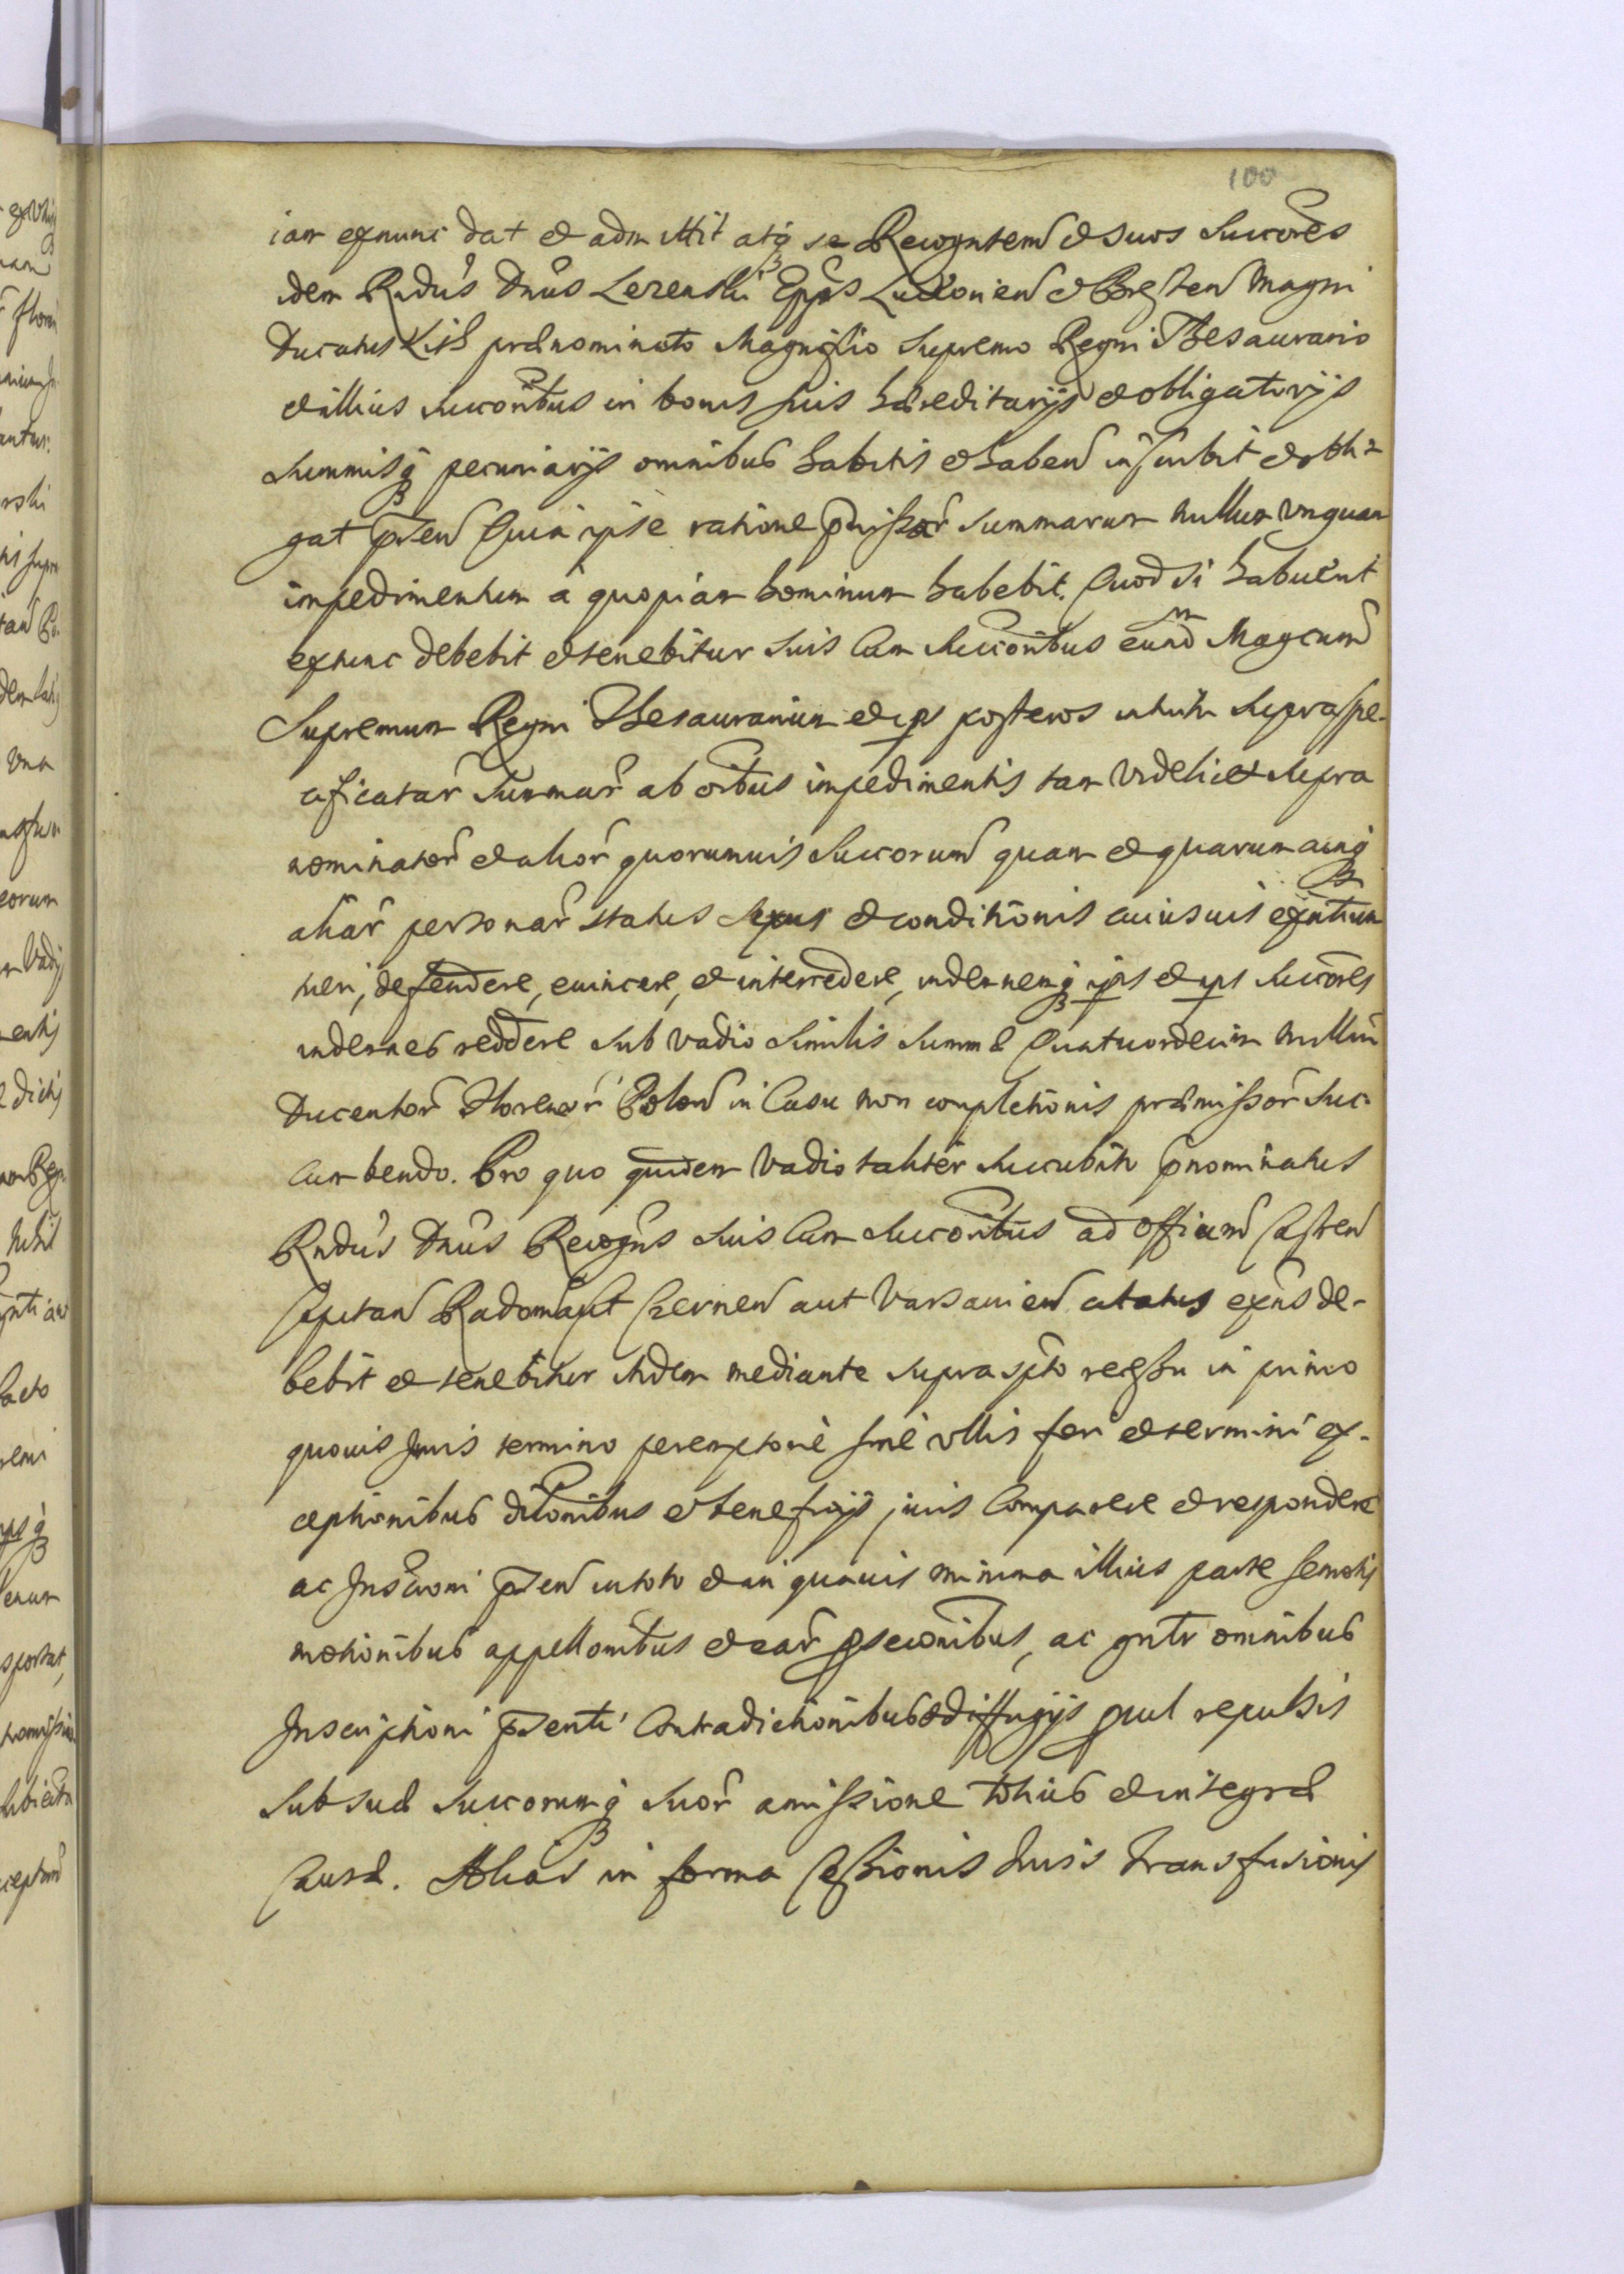 100
iam exnunc dat et admittit atq se Recogntem et suos Succores
idem Rndus Dnus Lezenski Epps Luceorien et Bresten Magni
Ducatus Lith prænominato Magnifico Supremo Regni Thesaurario
et illius succoribus in bonis suis hæreditarijs et obligatorijs
Summisq pecuniarijs omnibus habitis et haben inscribit et obli-
gat pñten Quia ipse ratione pmissar Summarum nullum vnquam
impedimentum à quopiam hominum habebit. Quod si habuerit
extunc debebit et tenebitur suis cum succoribus eund Magcum
Supremum Regni Thesaurarium et ips posteros intuitu supraspe-
cificatar Summar ab oibus impedimentis tam videlicet supra
nominator et alior quorumuis Succorum quam et quarumcunq
aliar personar status sexus et conditionis cuiusuis exntium
tueri, defendere, euincere, et intercedere, indemnemq ips et ips succores
indemnes reddere sub vadio similis Summæ Quatuordecim Millium
Ducentor Florenor Polon in Casu non completionis præmissor suc-
cumbendo. Pro quo quidem Vadio taliter succubito pnominatus
Rndus Dnus Recogns suis cum succoribus ad Officium Castren
Capitan Radomien aut Czernen aut Varsauien citatus exns de-
bebit et tenebitur ibidem mediante suprascpto recessu in primo
quouis Juris termino peremptoriè sine vllis fori et termini ex-
ceptionibus dilonibus et beneficijs juris Comparere et respondere
ac Inscrioni pñten in toto et in quauis minima illius parte semotis
motionibus appellonibus et ear psecionibus, ac gntr omnibus
Inscriptioni pñsenti Contradictionibus et diffugijs pcul repulsis
Sub suæ succorumq suor amissione totius et integræ
Causæ. Alias in forma Cessionis Juris Transfusionis